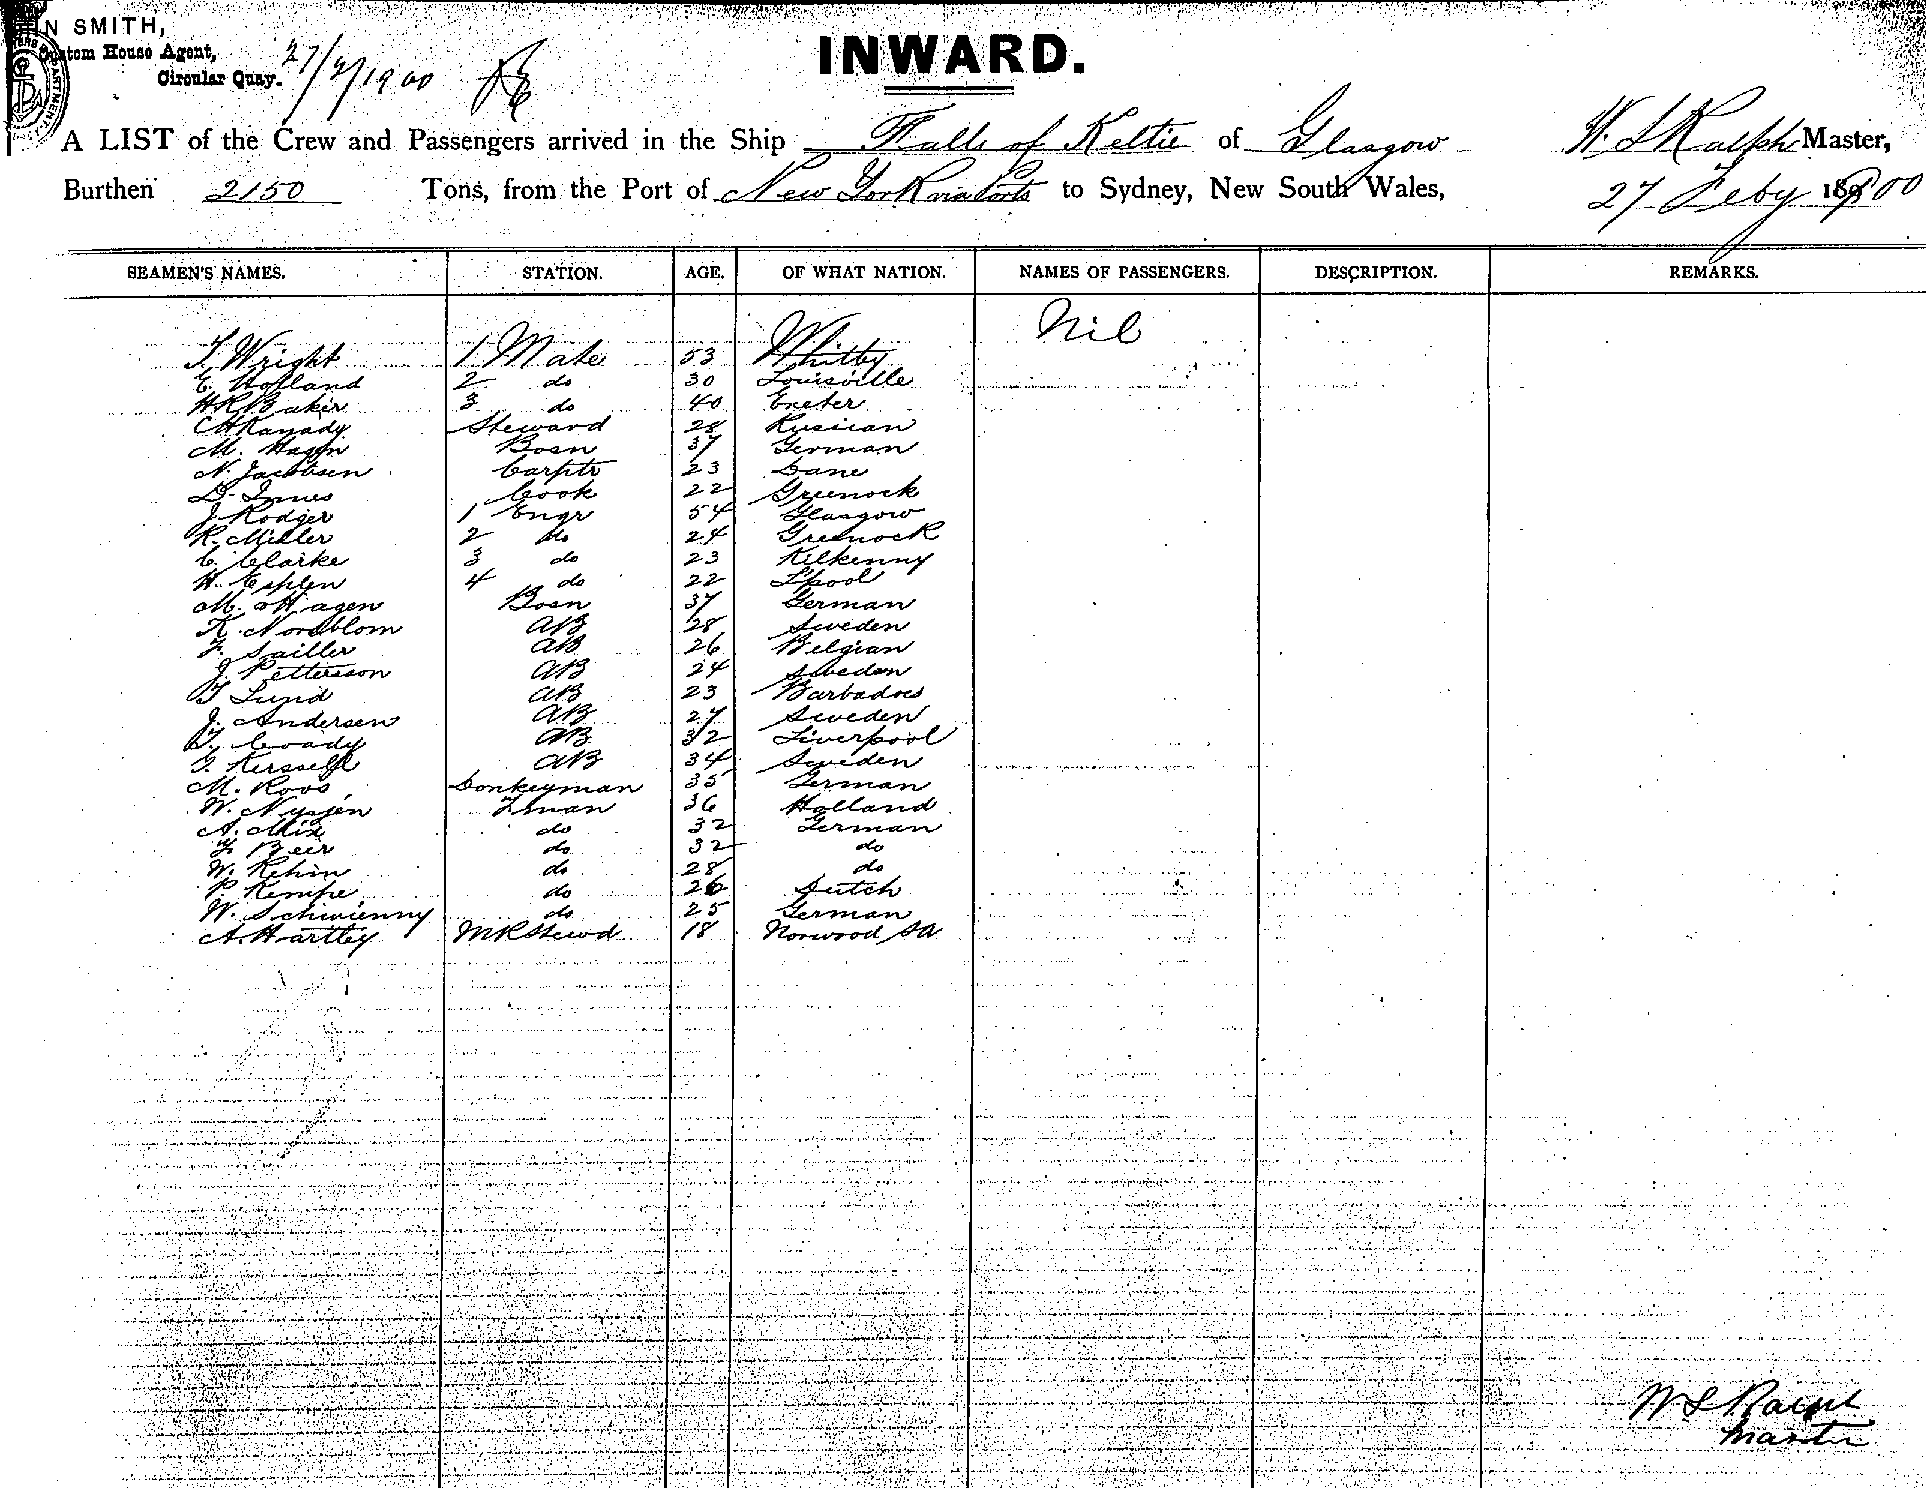 N SMITH,
Custom House Agent,
Circular Quay.
27/2/1900
INWARD.
A LIST of the Crew and Passengers arrived in the Ship Falls of Keltie of Glasgow W. S Ralph Master,
Burthen 2150 Tons, from the Port of New York via Ports to Sydney, New South Wales, 27 Feby 1900
SEAMEN'S NAMES. STATION. AGE. OF WHAT NATION. NAMES OF PASSENGERS. DESCRIPTION. REMARKS.
Nil
T. Wright 1 Mate 53 Whitby
E. Hofland 2 do 30 Louisville
HR Baker 3 do 40 Exeter
CH Kanady Steward 28 Rusican
M. Hagen Bosn 37 German
N. Jacobsen Carptr 23 Dane
D. Innes Cook 22 Greenock
J. Rodger 1 Engr 54 Glasgow
R. Miller 2 do 24 Greenock
C. Clarke 3 do 23 Kilkenny
H. Esplen 4 do 22 L'pool
M. Hagen Bosn 37 German
K. Nordblom AB 28 Sweden
F. Sailler AB 26 Belgian
J. Pettersson AB 24 Sweden
T Lund AB 23 Barbadoes
J. Andersen AB 27 Sweden
T. Coady AB 32 Liverpool
AB 34 Sweden
M. Roos Donkeyman 35 German
W. Nyssen Fman 36 Holland
A. Mix do 32 German
F. Beir do 32 do
W. Rehm do 28 do
P. Kempe do 26 Dutch
W. Schwienny do 25 German
A. Hartley MR Stewd 18 Norwood SA
W S Ralph
Master